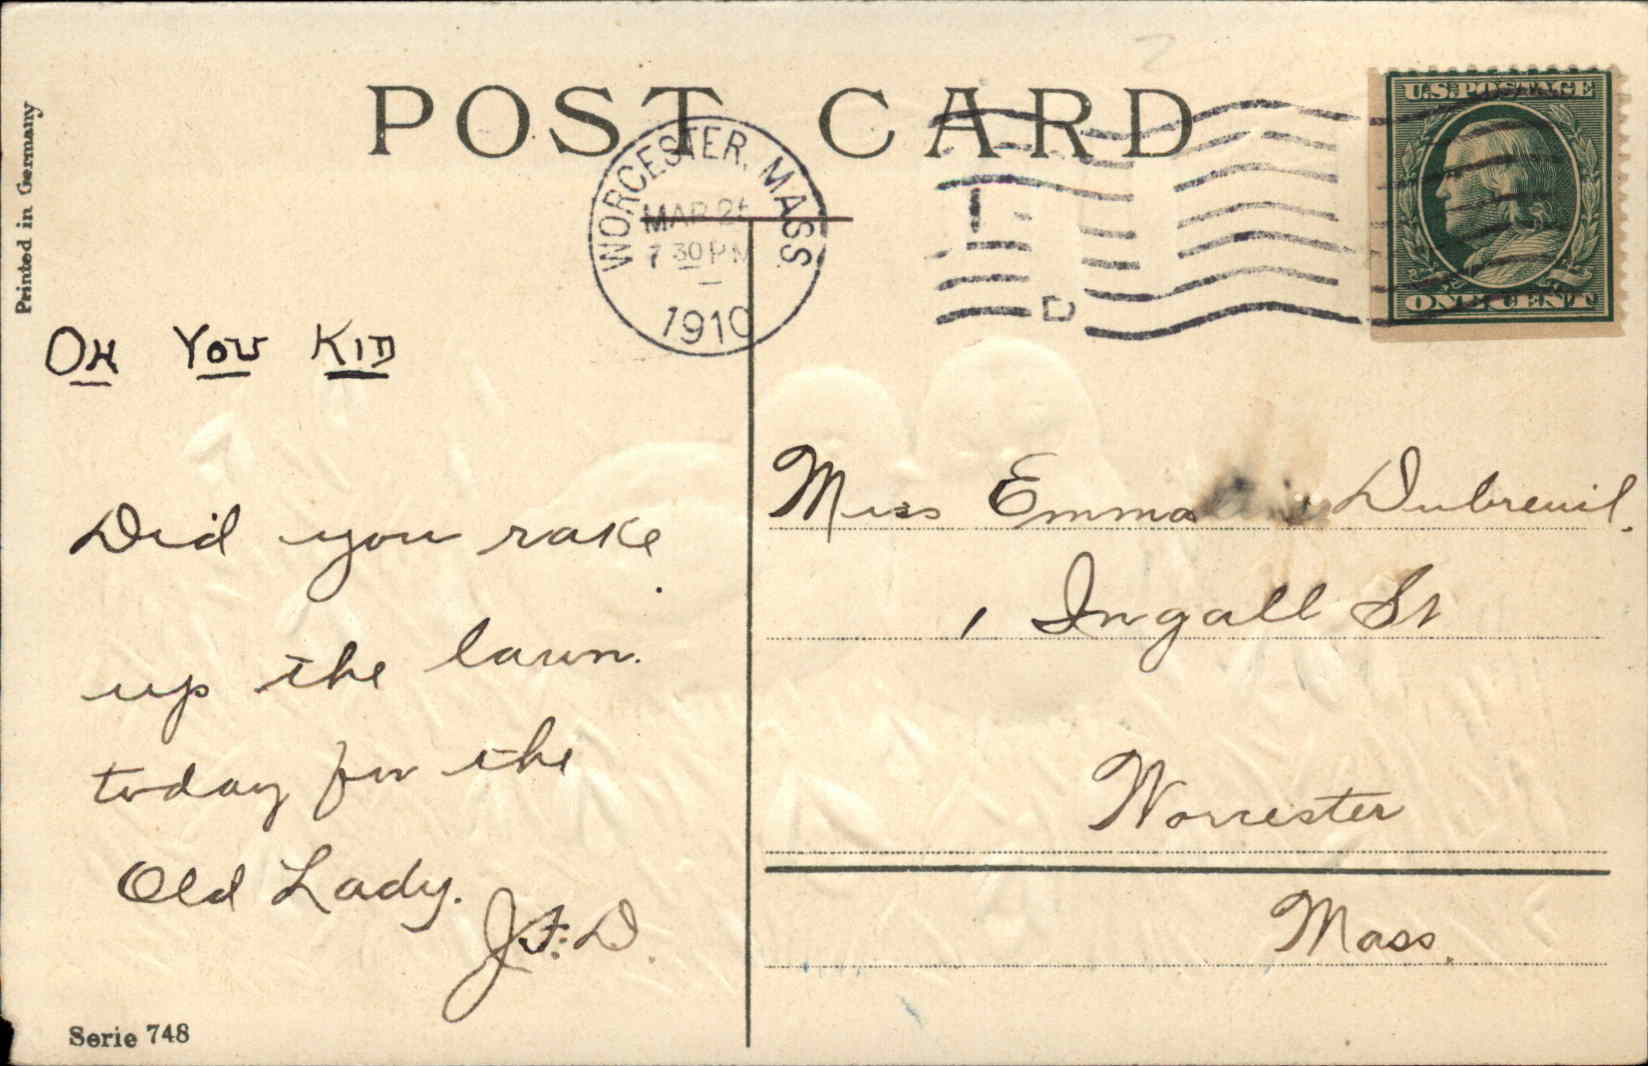 POST CARD
Printed in Germany
WORCESTER, MASS
MAR 2
7 30 PM
1910
D
U.S. POSTAGE
ONE CENT
OH YOU KID
Did you rake
up the lawn.
today for the
Old Lady.
J.F.D.
Miss Emma Dubreuil.
1 Ingall St
Worcester
Mass.
Serie 748